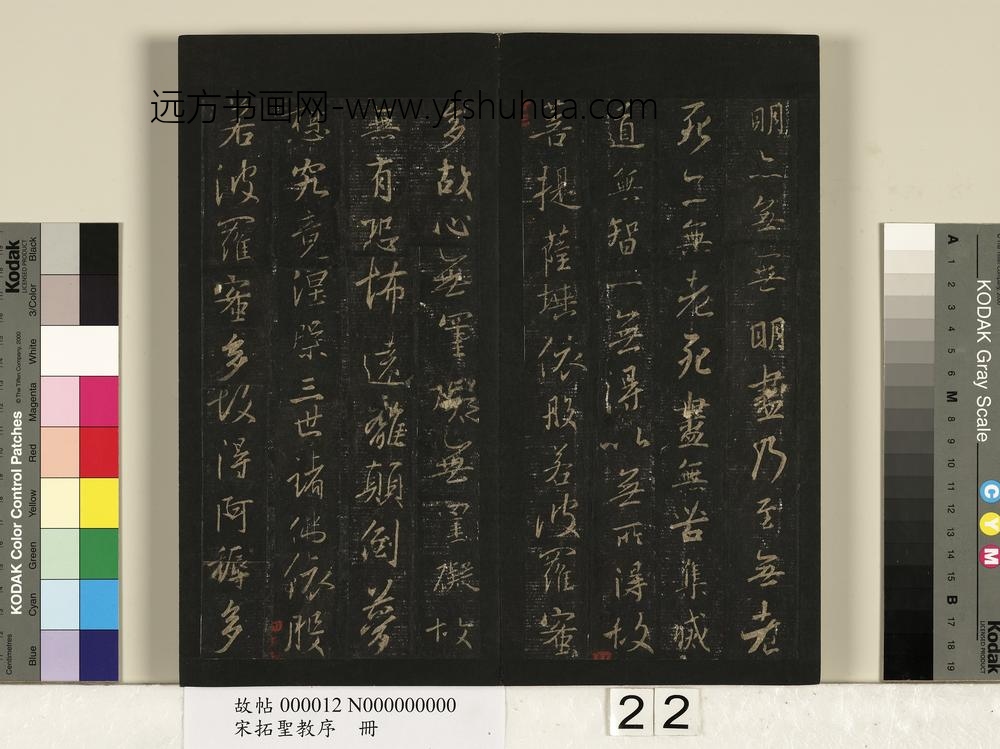 远方书画网-www.yfshuhua.com
明亦無無明盡乃至無老
死亦無老死盡無苦集滅
道無智亦無得以無所得故
菩提薩埵依般若波羅蜜
多故心無罣礙無罣礙故
無有恐怖遠離顛倒夢
想究竟涅槃三世諸佛依般
若波羅蜜多故得阿耨多
Kodak
LICENSED PRODUCT
Black
3/Color
White
Magenta
Red
Yellow
Green
Cyan
Blue
© The Tiffen Company, 2000
KODAK Color Control Patches
Centimetres
KODAK Gray Scale
A 1 2 3 4 5 6 M 8 9 10 11 12 13 14 15 B 17 18 19
C
Y
M
Kodak
LICENSED PRODUCT
故帖 000012 N000000000
宋拓聖教序 冊
22